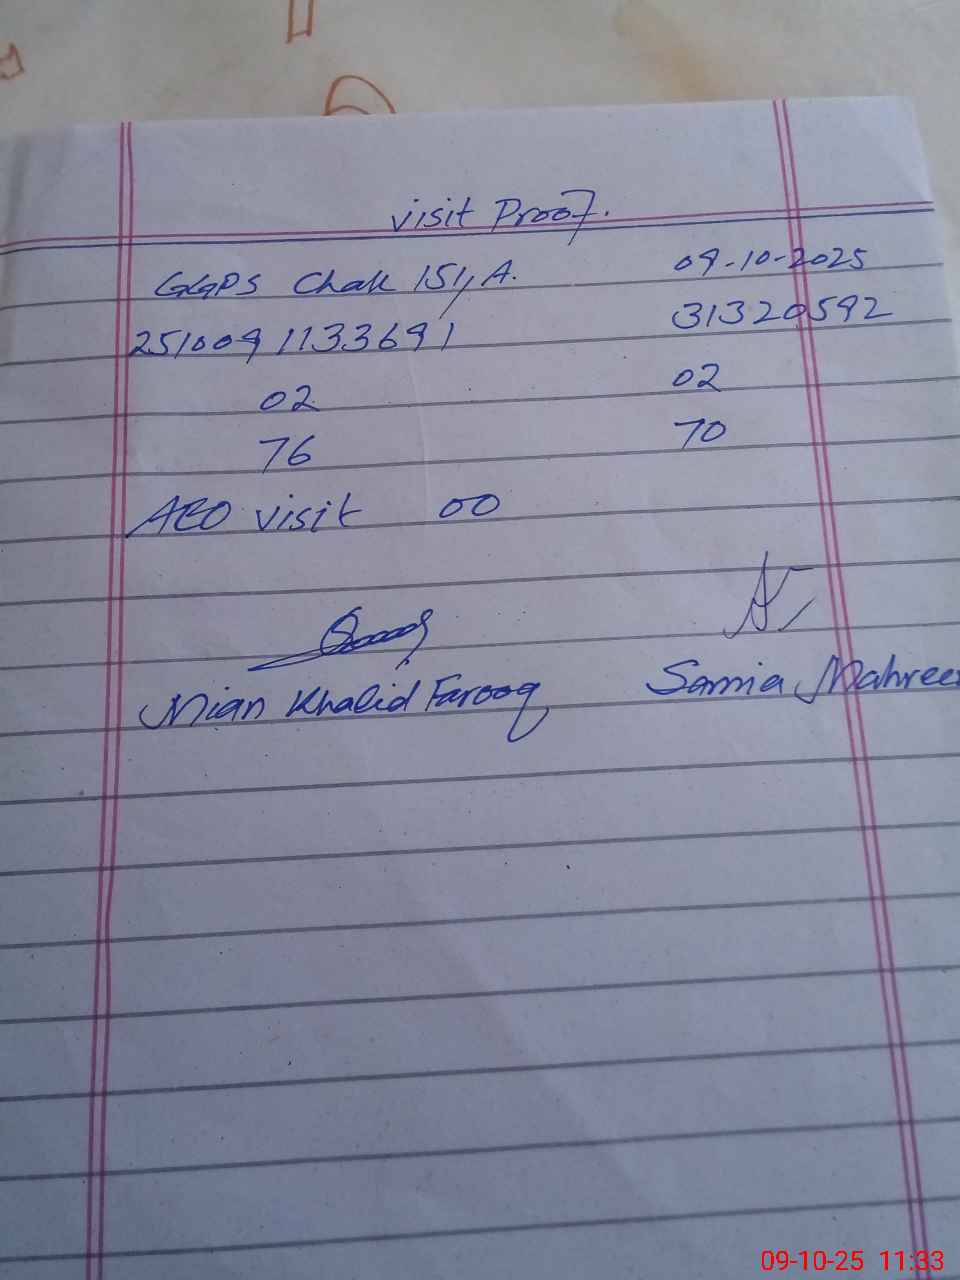 visit Proof.
GGPS Chak 151/A. 09-10-2025
2510091133691 31320592
02 02
76 70
AEO visit 00
Mian Khalid Farooq Samia Mahreen
09-10-25 11:33